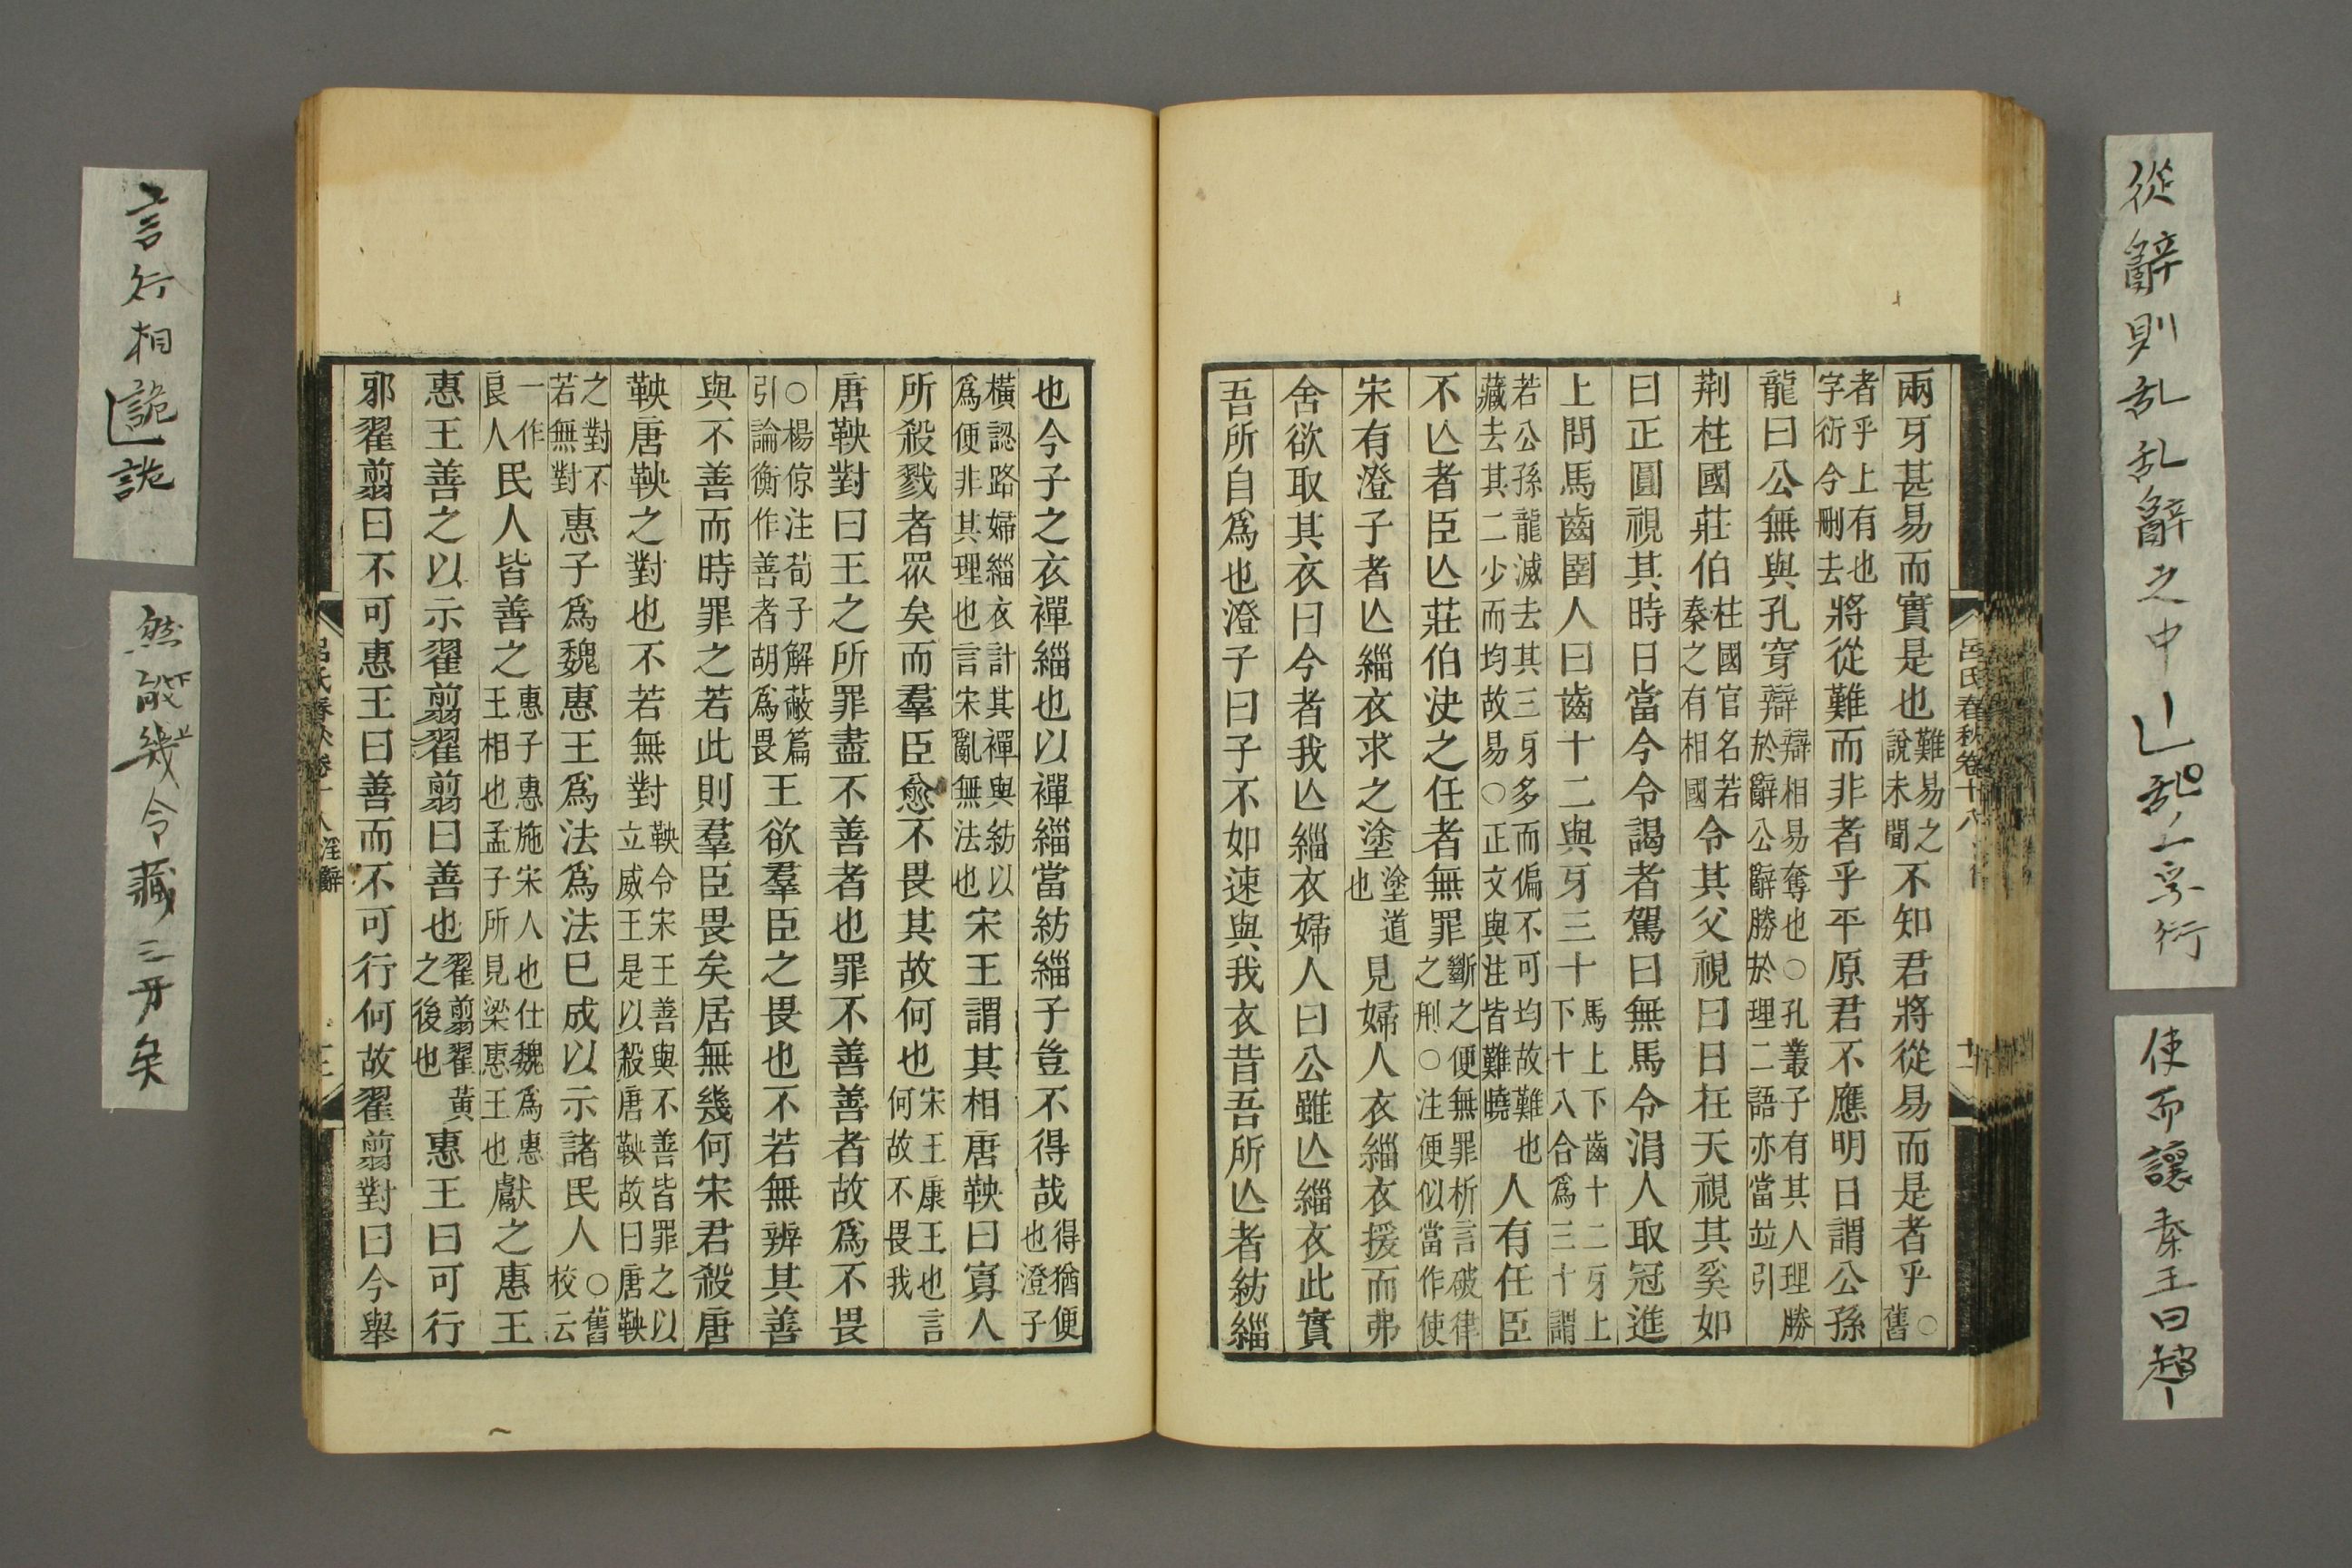 從辭則乱乱辭之中
乱
行
使而讓秦王曰趙
呂氏春秋卷十八
十一
兩牙甚易而實是也難易之說未聞不知君將從易而是者乎○舊
者乎上有也字衍今刪去將從難而非者乎平原君不應明日謂公孫
龍曰公無與孔穿辯辯相易奪也○孔叢子有其人理勝於辭公辭勝於理二語亦當竝引
荆柱國莊伯柱國官名若秦之有相國令其父視曰日在天視其奚如
曰正圓視其時日當今令謁者駕曰無馬令涓人取冠進
上問馬齒圉人曰齒十二與牙三十馬上下齒十二牙上下十八合爲三十謂
若公孫龍滅去其三牙多而偏不可均故難也藏去其二少而均故易○正文與注皆難曉人有任臣
不亾者臣亾莊伯決之任者無罪斷之便無罪析言破律之刑○注便似當作使
宋有澄子者亾緇衣求之塗塗道也見婦人衣緇衣援而弗
舍欲取其衣曰今者我亾緇衣婦人曰公雖亾緇衣此實
吾所自爲也澄子曰子不如速與我衣昔吾所亾者紡緇
也今子之衣襌緇也以襌緇當紡緇子豈不得哉得猶便也澄子
橫認路婦緇衣計其襌與紡以爲便非其理也言宋亂無法也宋王謂其相唐鞅曰寡人
所殺戮者眾矣而羣臣愈不畏其故何也宋王康王也言何故不畏我
唐鞅對曰王之所罪盡不善者也罪不善善者故爲不畏
○楊倞注荀子解蔽篇引論衡作善者胡爲畏王欲羣臣之畏也不若無辨其善
與不善而時罪之若此則羣臣畏矣居無幾何宋君殺唐
鞅唐鞅之對也不若無對鞅令宋王善與不善皆罪之以立威王是以殺唐鞅故曰唐鞅
之對不若無對惠子爲魏惠王爲法爲法已成以示諸民人○舊校云
一作良人民人皆善之惠子惠施宋人也仕魏爲惠王相也孟子所見梁惠王也獻之惠王
惠王善之以示翟翦翟翦曰善也翟翦翟黃之後也惠王曰可行
邪翟翦曰不可惠王曰善而不可行何故翟翦對曰今舉
呂氏春秋卷十八 淫辭
言行相詭詭
然
幾令藏三牙矣